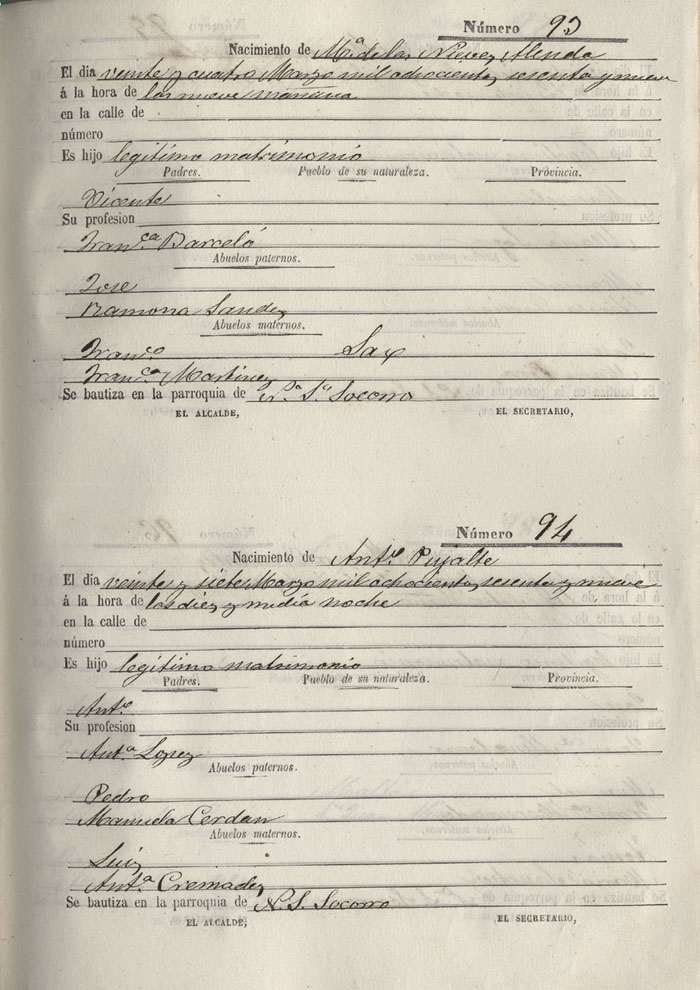 Número 93
Nacimiento de Mª de las Nieves Alenda
El dia veinte y cuatro Marzo mil ochocientos sesenta y nueve
á la hora de las nueve mañana
en la calle de
número
Es hijo legitimo matrimonio
Padres. Pueblo de su naturaleza. Provincia.
Vicente
Su profesion
Franᶜᵃ Barceló
Abuelos paternos.
Jose
Ramona Sandez
Abuelos maternos.
Franᶜᵒ Sax
Franᶜᵃ Martinez
Se bautiza en la parroquia de Nª Sª Socorro
EL ALCALDE, EL SECRETARIO,
Número 94
Nacimiento de Antº Pujalte
El dia veinte y siete Marzo mil ochocientos sesenta y nueve
á la hora de las diez y media noche
en la calle de
número
Es hijo legitimo matrimonio
Padres. Pueblo de su naturaleza. Provincia.
Antº
Su profesion
Antª Lopez
Abuelos paternos.
Pedro
Manuela Cerdan
Abuelos maternos.
Luis
Antª Cremades
Se bautiza en la parroquia de N. S. Socorro
EL ALCALDE, EL SECRETARIO,